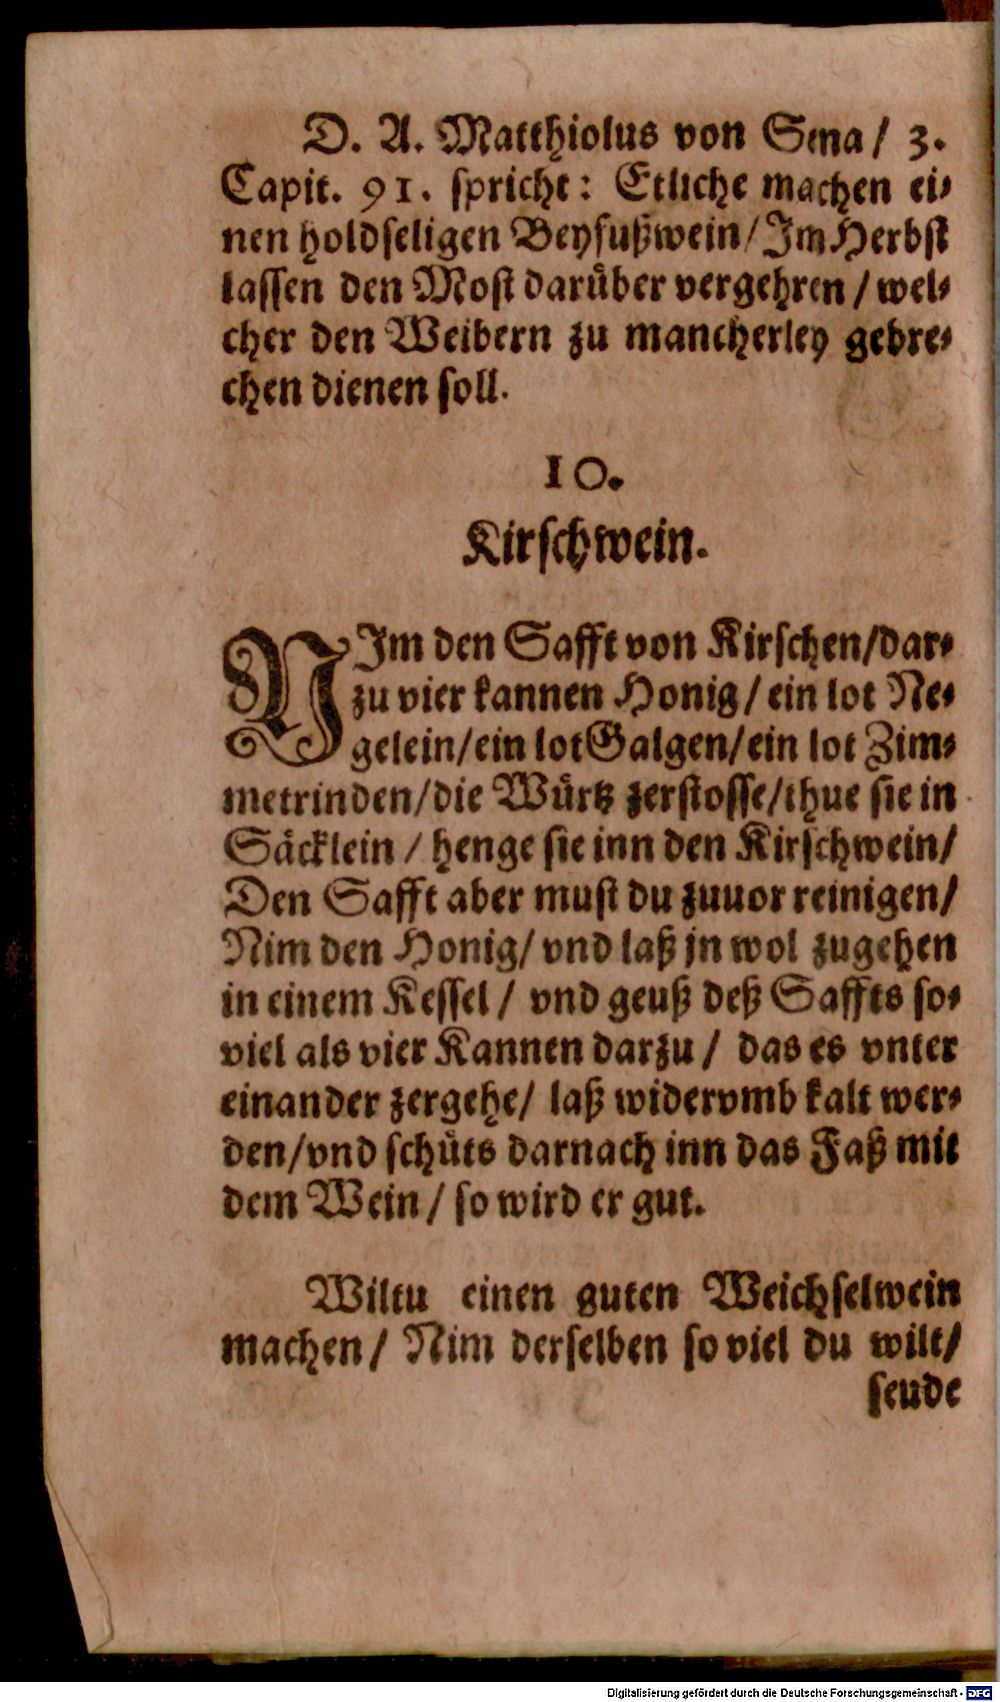 D. A. Matthiolus von Sena / 3.
Capit. 91. spricht: Etliche machen ei⸗
nen holdseligen Beyfußwein / Im Herbst
lassen den Most darüber vergehren / wel⸗
cher den Weibern zu mancherley gebre⸗
chen dienen soll.
10.
Kirschwein.
NIm den Safft von Kirschen/dar⸗
zu vier kannen Honig / ein lot Ne⸗
gelein/ein lot Galgen/ein lot Zim⸗
metrinden/die Würtz zerstosse/thue sie in
Säcklein / henge sie inn den Kirschwein/
Den Safft aber must du zuuor reinigen/
Nim den Honig/ vnd laß jn wol zugehen
in einem Kessel / vnd geuß deß Saffts so⸗
viel als vier Kannen darzu / das es vnter
einander zergehe/ laß widervmb kalt wer⸗
den/vnd schüts darnach inn das Faß mit
dem Wein / so wird er gut.
Wiltu einen guten Weichselwein
machen / Nim derselben so viel du wilt/
seude
Digitalisierung gefördert durch die Deutsche Forschungsgemeinschaft - DFG